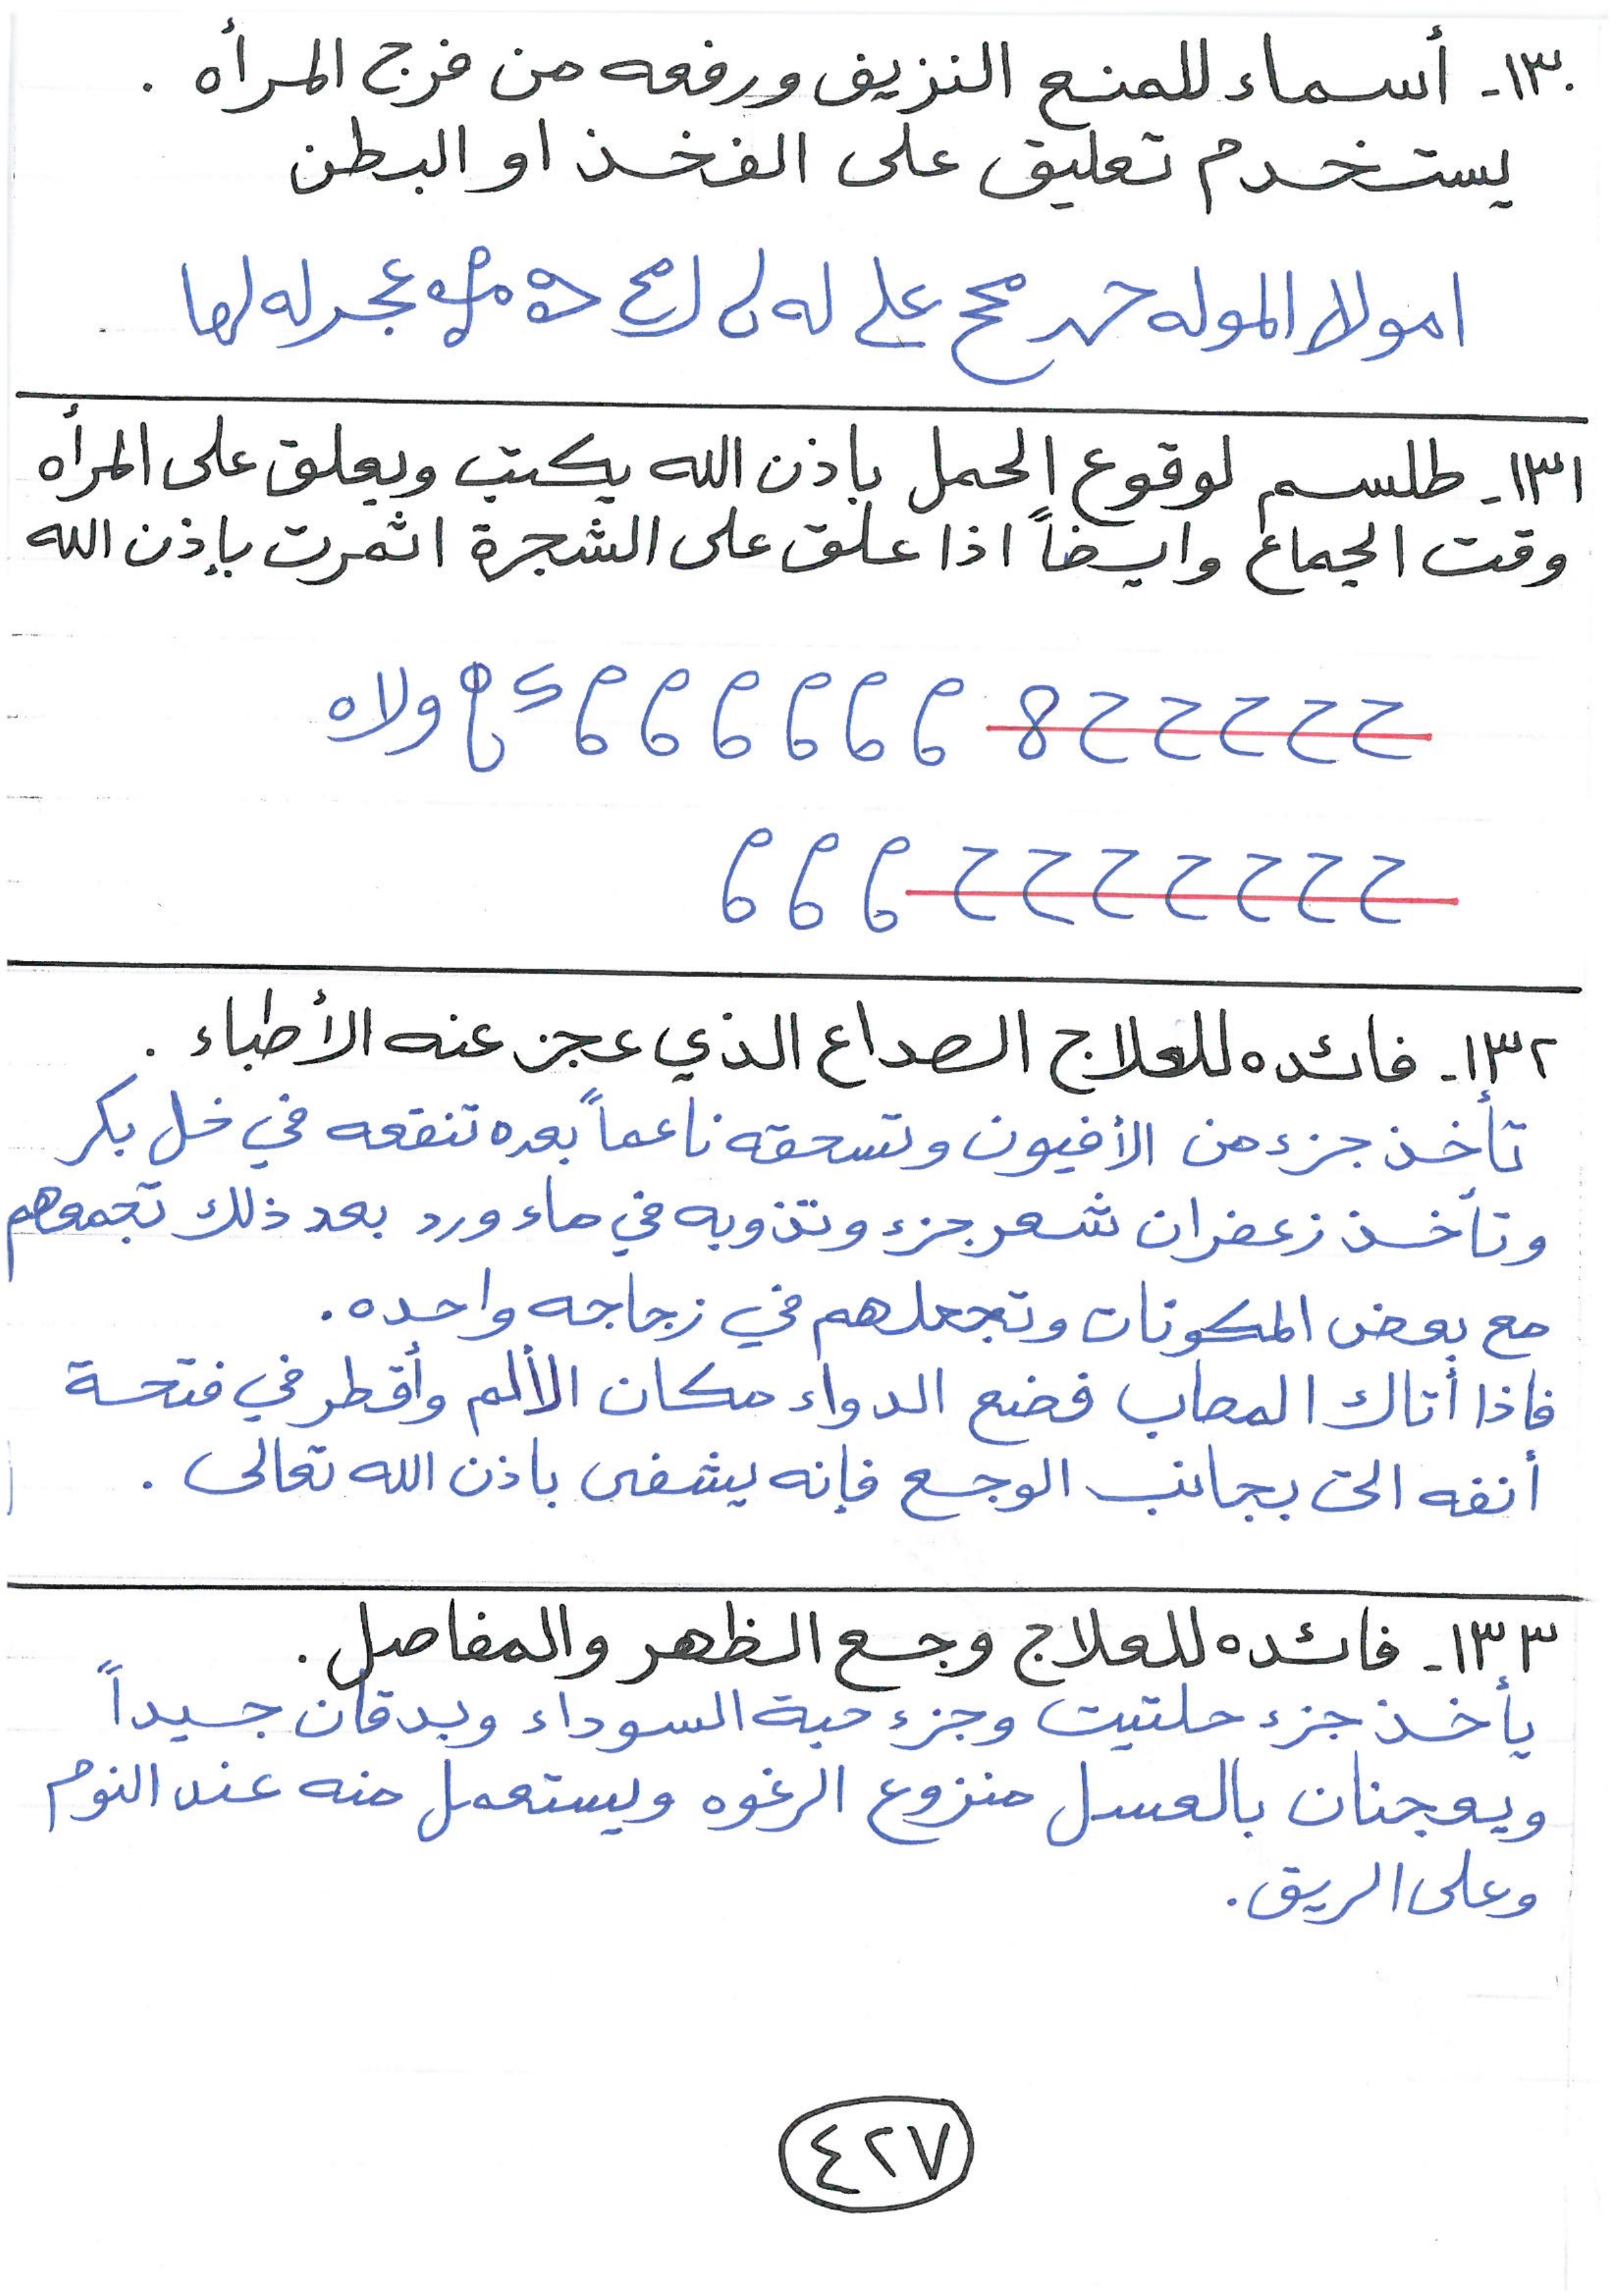 ١٣٠- أسماء للمنع النزيف ورفعه من فرج المرأه .
يستخدم تعليق على الفخذ او البطن
امولا الموله محح على له عجر له لها
١٣١- طلسم لوقوع الحمل باذن الله يكتب ويعلق على المرأه
وقت الجماع وايضاً اذا علق على الشجرة اثمرت بإذن الله
ح ح ح ح ح 8 ولاه
ح ح ح ح ح ح ح
١٣٢- فائده للعلاج الصداع الذي عجز عنه الأطباء .
تأخذ جزء من الأفيون وتسحقه ناعماً بعده تنقعه في خل بكر
وتأخذ زعفران شعر جزء وتذوبه في ماء ورد بعد ذلك تجمعهم
مع بعض المكونات وتجعلهم في زجاجه واحده .
فاذا أتاك المصاب فضع الدواء مكان الألم وأقطر في فتحة
أنفه التى بجانب الوجع فإنه يشفى باذن الله تعالى .
١٣٣- فائده للعلاج وجع الظهر والمفاصل .
يأخذ جزء حلتيت وجزء حبة السوداء ويدقان جسيداً
ويعجنان بالعسل منزوع الرغوه ويستعمل منه عند النوم
وعلى الريق .
٤٢٧